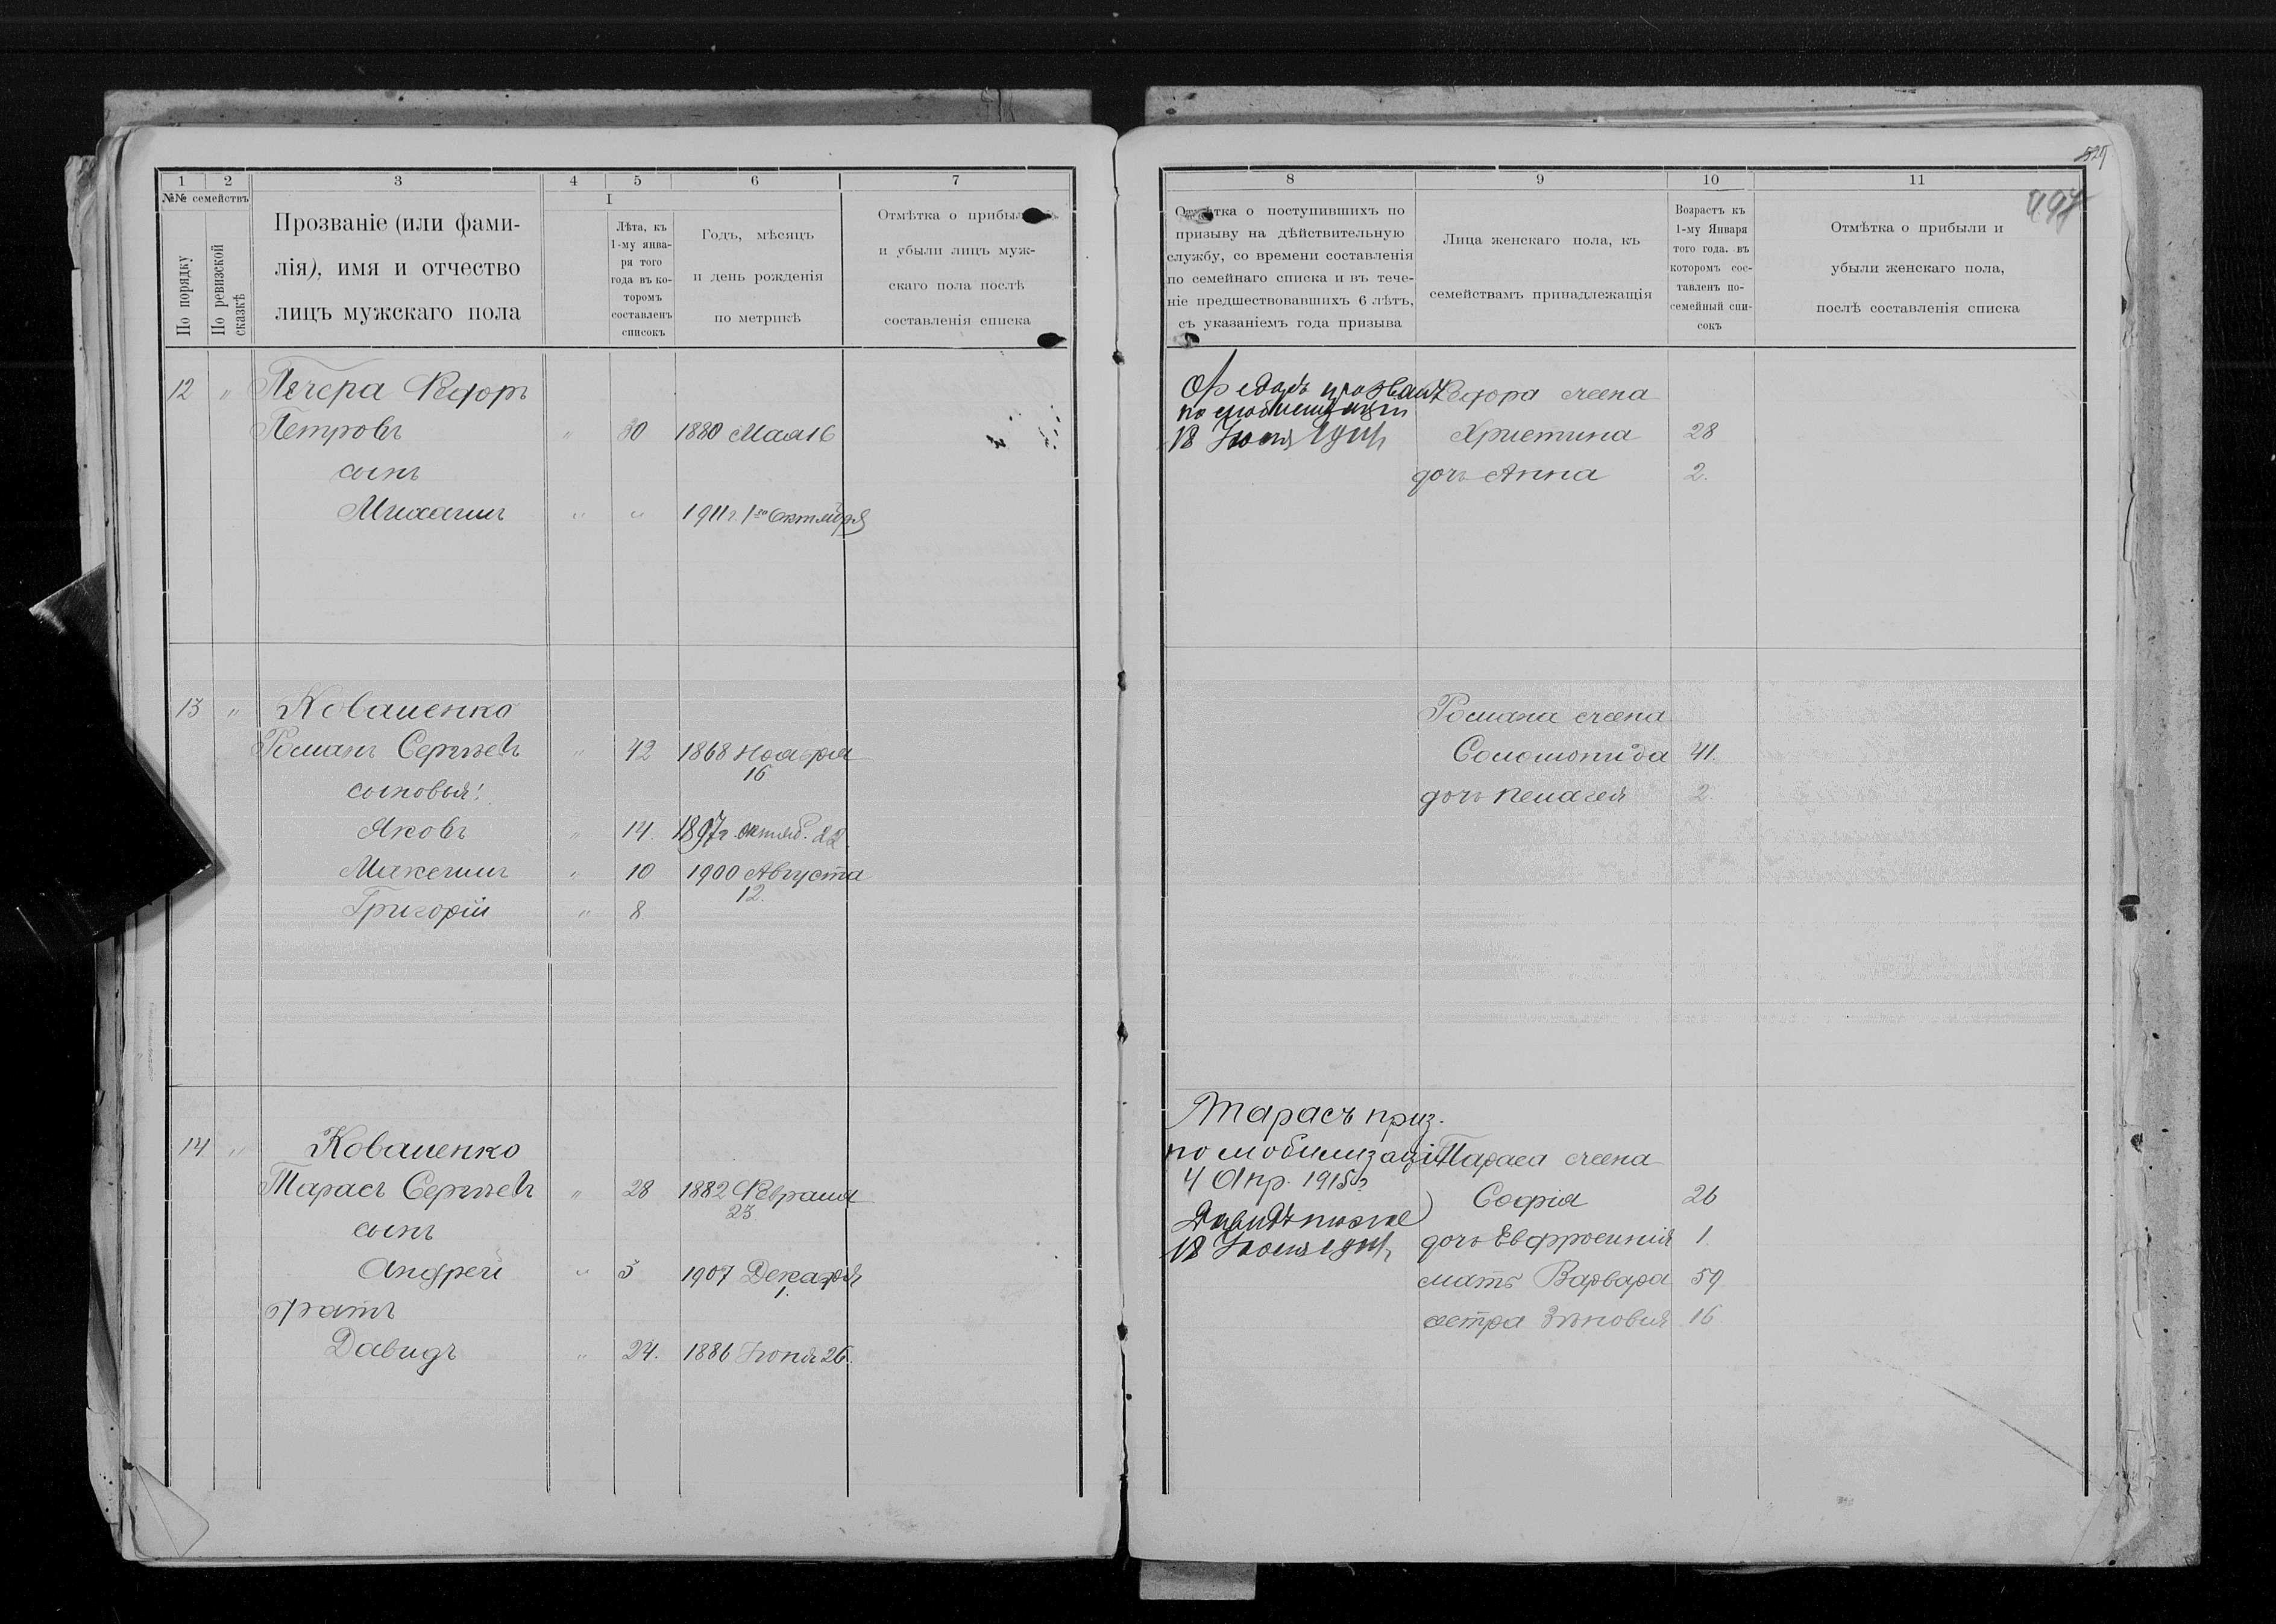 527
497
1 2 3 4 5 6 7
№№ семействъ
По порядку
По ревизской сказкѣ
Прозваніе (или фами-
лія), имя и отчество
лицъ мужскаго пола
I
Лѣта, къ
1-му янва-
ря того
года въ ко-
торомъ
составленъ
списокъ
Годъ, мѣсяцъ
и день рожденія
по метрикѣ
Отмѣтка о прибыли
и убыли лицъ муж-
скаго пола послѣ
составленія списка
12 " Печера Ѳедоръ
Петровъ " 30 1880 Мая 16
сынъ
Михаилъ " " 1911 г. 1го Октября
13 " Коваленко
Романъ Сергѣевъ " 42 1868 Ноября
16
сыновья:
Яковъ " 14. 1897 г. октяб. 22
Макеимъ " 10 1900 Августа
12.
Григорій " 8
14 " Коваленко
Тарасъ Сергѣевъ " 28 1882 Ѳевраля
23
сынъ
Андрей " 3 1907 Декабря
1.
братъ
Давидъ " 24. 1886 Іюня 26.
8 9 10 11
Отмѣтка о поступившихъ по
призыву на дѣйствительную
службу, со времени составленія
по семейнаго списка и въ тече-
ніе предшествовавшихъ 6 лѣтъ,
съ указаніемъ года призыва
Лица женскаго пола, къ
семействамъ принадлежащія
Возрастъ къ
1-му Января
того года. въ
которомъ сос-
тавленъ по-
семейный спи-
сокъ
Отмѣтка о прибыли и
убыли женскаго пола,
послѣ составленія списка
Федоръ призван
по мобилизации
18 Іюля 1914 г.
Ѳедора жена
Христина 28
дочь Анна 2.
Романа жена
Соломонида 41.
дочь Пелагея 2.
Тарасъ приз.
по мобилизаціи
4 Апр. 1915 г.
Давидъ тоже
18 Іюля 1914 г.
Тараса жена
Софія 26
дочь Евфросинія 1.
мать Варвара 59
сестра Зѣновія 16